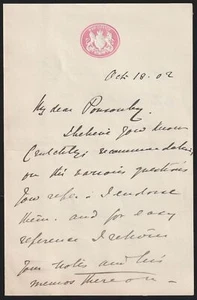 Oct 18. 02
My dear Ponsonby.
I believe you know
on the various questions
you refer. I endorse
them. and for easy
reference I return
your notes and his
memos thereon –